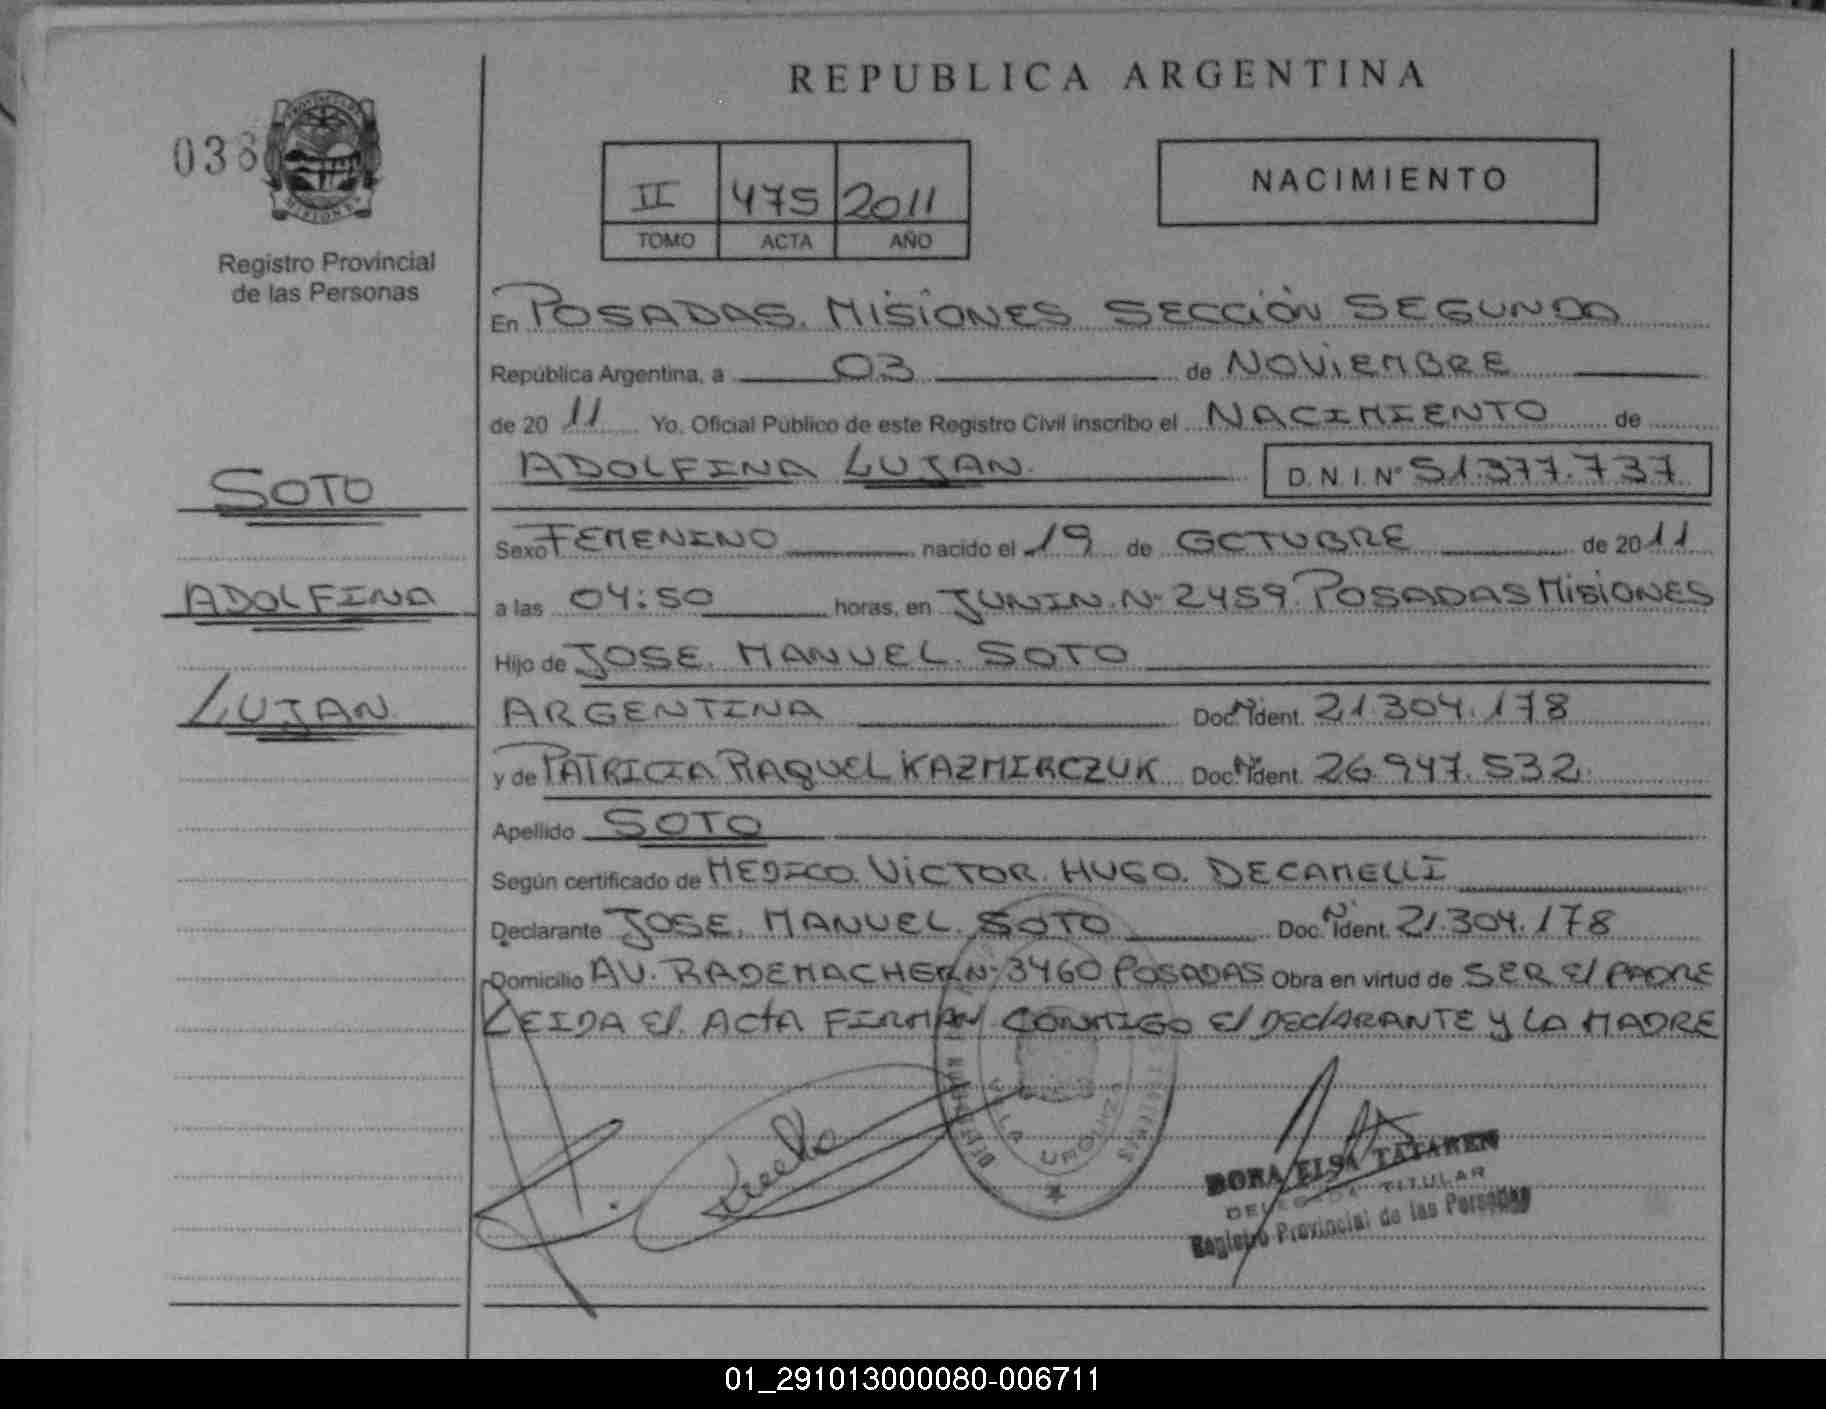 REPUBLICA ARGENTINA
038
Registro Provincial
de las Personas
II 475 2011
TOMO ACTA AÑO
NACIMIENTO
En POSADAS. MISIONES SECCIÓN SEGUNDA
República Argentina, a 03 de NOVIEMBRE
de 20 11 Yo, Oficial Público de este Registro Civil inscribo el NACIMIENTO de
ADOLFINA LUJAN. D.N.I.Nº 51.377.737
SOTO
ADOLFINA
LUJAN
Sexo FEMENINO nacido el 19 de OCTUBRE de 2011
a las 04:50 horas, en JUNIN. Nº 2459. POSADAS MISIONES
Hijo de JOSE. MANUEL. SOTO
ARGENTINA Doc. Nº Ident. 21.304.178
y de PATRICIA RAQUEL KAZMIRCZUK Doc. Nº Ident. 26.947.532.
Apellido SOTO
Según certificado de MEDICO. VICTOR. HUGO. DECAMELLI
Declarante JOSE. MANUEL. SOTO Doc. Nº Ident. 21.304.178
Domicilio AV. RADEMACHER Nº 3460 POSADAS Obra en virtud de SER El PADRE
LEIDA El. ACTA FIRMAN CONMIGO El DEClARANTE y LA MADRE
VILLA URQUIZA
DORA ELSA TATAREN
DELEGADA TITULAR
Registro Provincial de las Personas
01_291013000080-006711